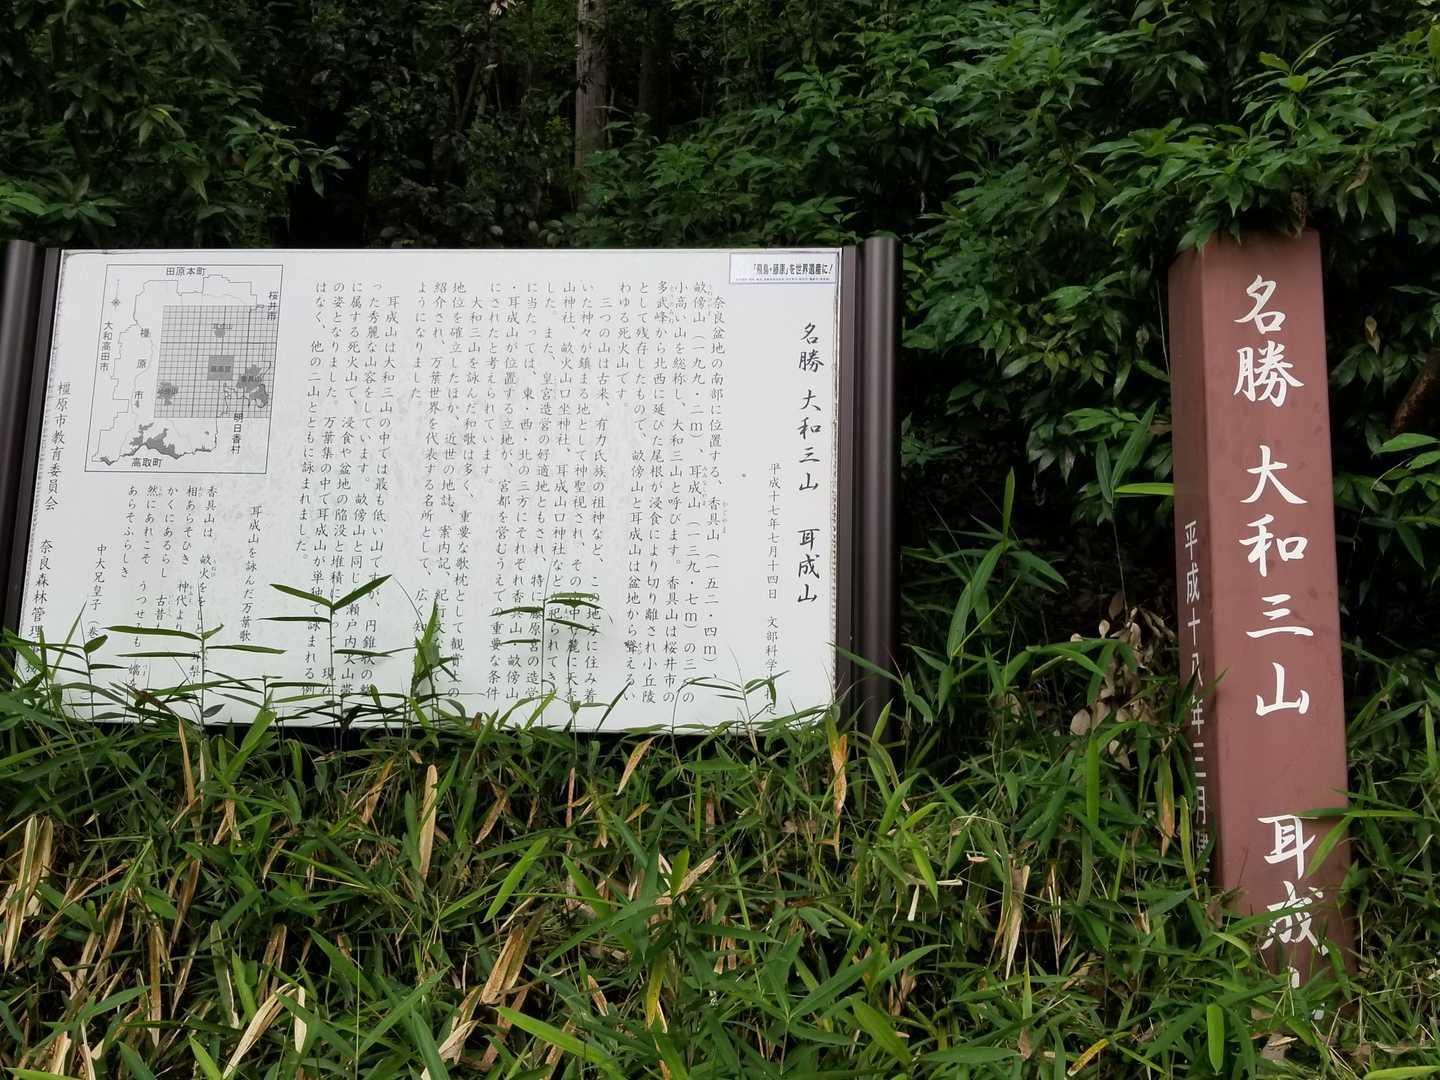 「飛鳥・藤原」を世界遺産に!
名勝 大和三山 耳成山
平成十七年七月十四日 文部科学
奈良盆地の南部に位置する、香具山（一五二・四m）
畝傍山（一九九・二m）、耳成山（一三九・七m）の三つの
小高い山を総称し、大和三山と呼びます。香具山は桜井市の
多武峰から北西に延びた尾根が浸食により切り離され小丘陵
として残存したもので、畝傍山と耳成山は盆地から聳えるい
わゆる死火山です。
三つの山は古来、有力氏族の祖神など、この地方に住み着
いた神々が鎮まる地として神聖視され、その山中や麓に天香
山神社、畝火山口坐神社、耳成山口神社などが祀られていま
した。また、皇宮造営の好適地ともされ、特に藤原宮の造営
に当たっては、東・西・北の三方にそれぞれ香具山、畝傍山
・耳成山が位置する立地が、宮都を営むうえでの重要な条件
にされたと考えられています。
大和三山を詠んだ和歌は多く、重要な歌枕として観賞上の
地位を確立したほか、近世の地誌、案内記、紀行文などで
紹介され、万葉世界を代表する名所として、広く知られる
ようになりました。
耳成山は大和三山の中では最も低い山ですが、円錐状の整
った秀麗な山容をしています。畝傍山と同じく瀬戸内火山帯
に属する死火山で、浸食や盆地の陥没と堆積によって、現在
の姿となりました。万葉集の中で耳成山が単独で詠まれる例
はなく、他の二山とともに詠まれました。
耳成山を詠んだ万葉歌
香具山は 畝火ををしと 耳梨と
相あらそひき 神代より
かくにあるらし 古昔も
然にあれこそ うつせみも 嬬
あらそふらしき
中大兄皇子（巻
田原本町
桜井市
橿原市
大和高田市
明日香村
高取町
耳成山
藤原宮
香具山
畝傍山
橿原市教育委員会
奈良森林管理
名勝 大和三山 耳成山
平成十八年三月建